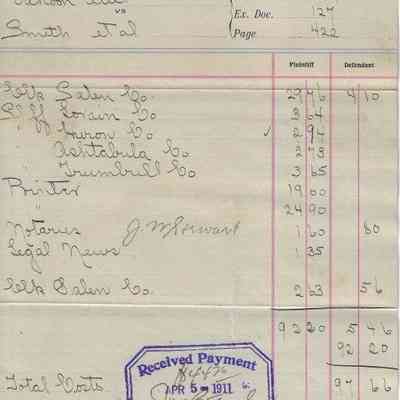 vs
Ex. Doc. 127
Smith et al
Page 422
Plaintiff Defendant
Clk Salen Co. 29 76 4 10
Shff Lorain Co 3 64
" Huron Co ✓ 2 94
Ashtabula Co 2 73
Trumbull Co 3 65
Printer 19 00
" 24 90
Notaries 1 60 80
Legal News 1 35
Clk Salen Co. 2 63 56
92 20 5 46
92 20
Received Payment
APR 5 1911
Total Costs 97 66